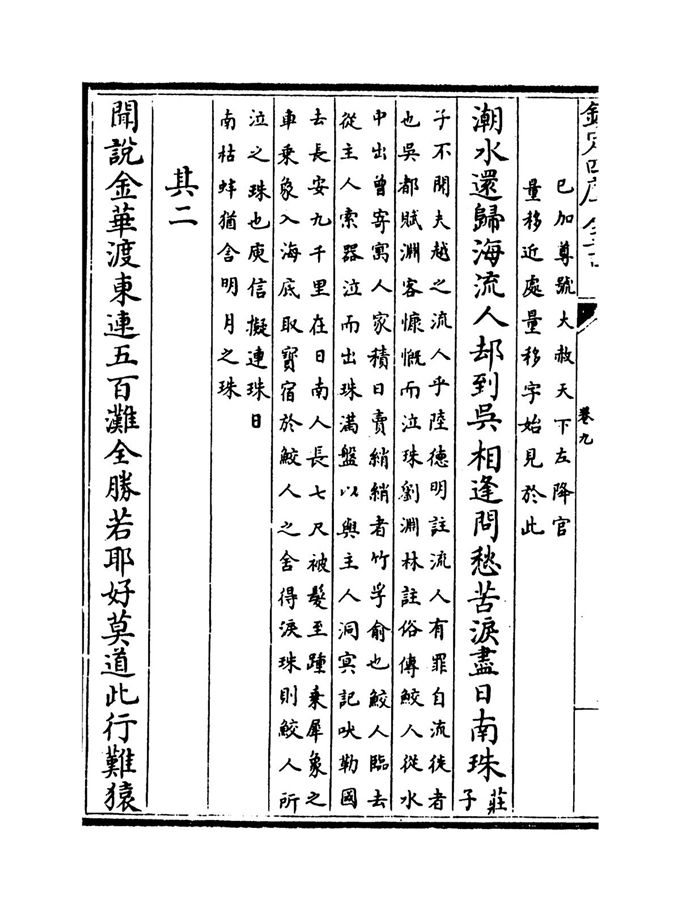 欽定四庫全書
卷九
已加尊號大赦天下左降官
量移近處量移字始見於此
潮水還歸海流人却到吳相逢問愁苦淚盡日南珠莊
子
子不聞夫越之流人乎陸德明註流人有罪自流徙者
也吳都賦淵客慷慨而泣珠劉淵林註俗傳鮫人從水
中出曾寄寓人家積日賣綃綃者竹孚俞也鮫人臨去
從主人索器泣而出珠滿盤以與主人洞冥記吠勒國
去長安九千里在日南人長七尺被髮至踵乗犀象之
車乗象入海底取寳宿於鮫人之舍得淚珠則鮫人所
泣之珠也庾信擬連珠日
南枯蚌猶含明月之珠
其二
聞說金華渡東連五百灘全勝若耶好莫道此行難猿